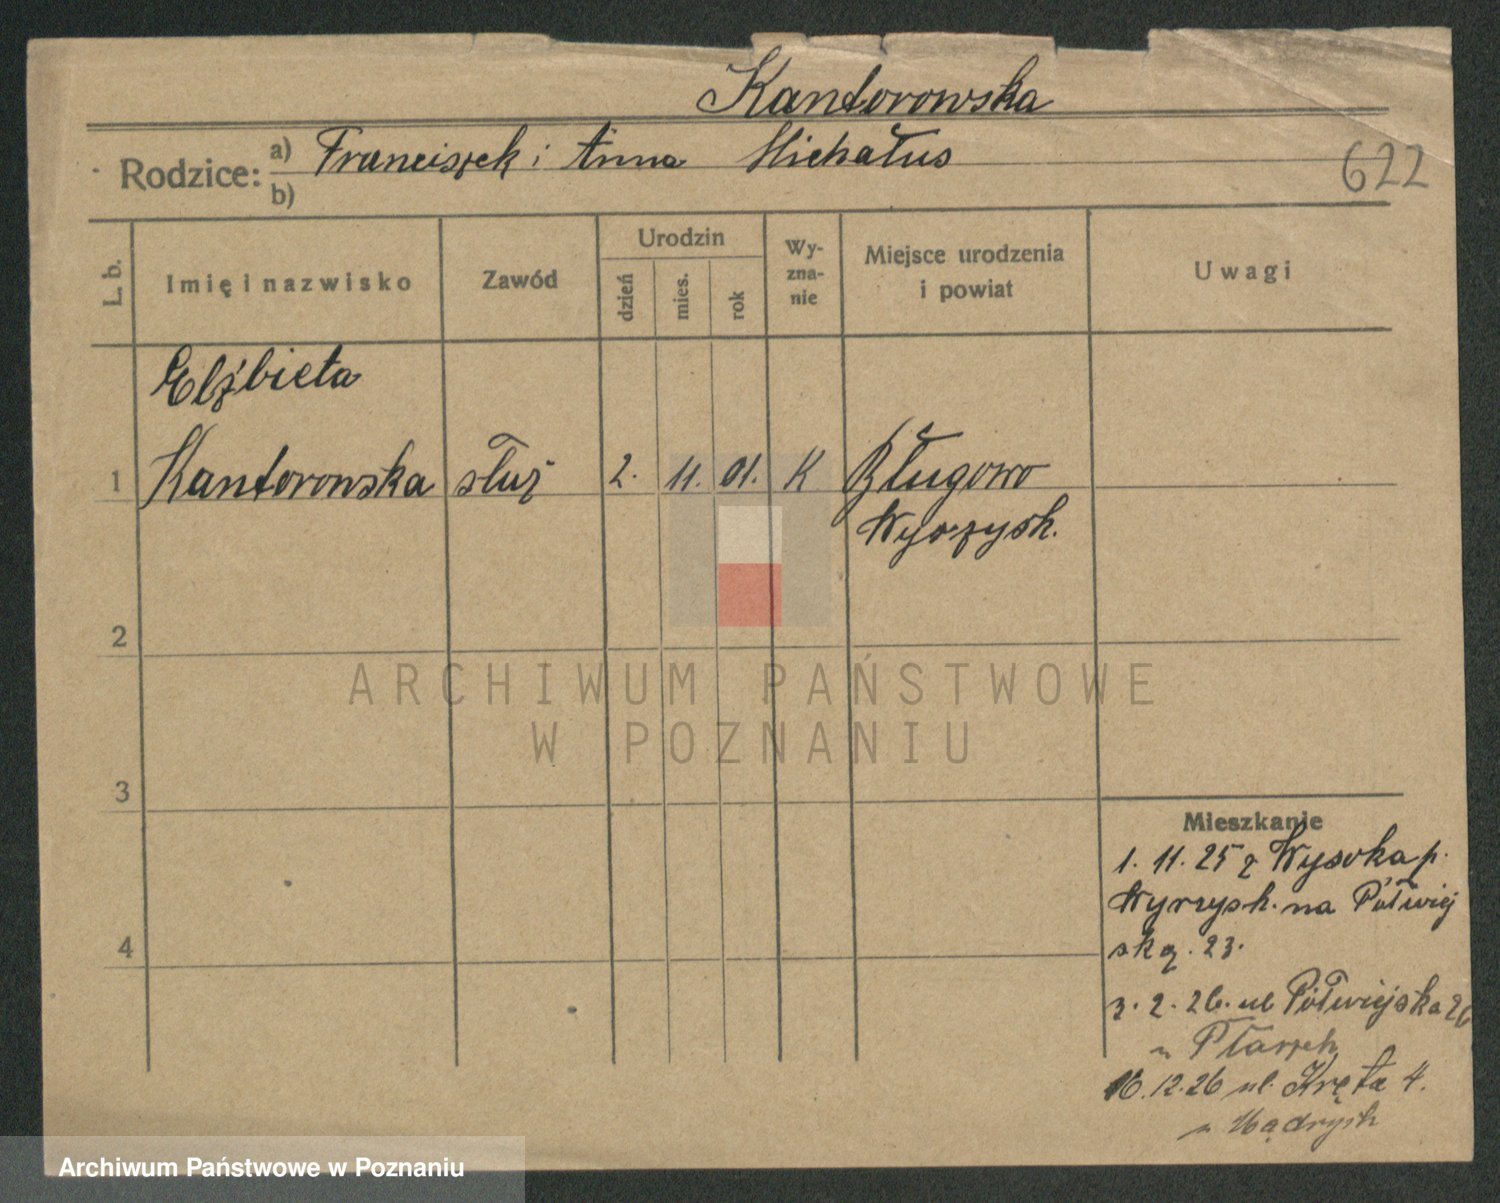 Kantorowska
Rodzice: a) Franciszek i Anna Michałus
b)
622
L. b.
Imię i nazwisko
Zawód
Urodzin
dzień
mies.
rok
Wy-
zna-
nie
Miejsce urodzenia
i powiat
Uwagi
Elżbieta
1 Kantorowska służ 2. 11. 01. K Długowo
Wyrzysk.
2
3
4
ARCHIWUM PAŃSTWOWE
W POZNANIU
Mieszkanie
1. 11. 25 z Wysoka p.
Wyrzysk. na Półwiej
ską. 23.
3. 2. 26. ul Półwiejska 26
u
16.12.26 ul. Kręta 4.
u Mądrych
Archiwum Państwowe w Poznaniu